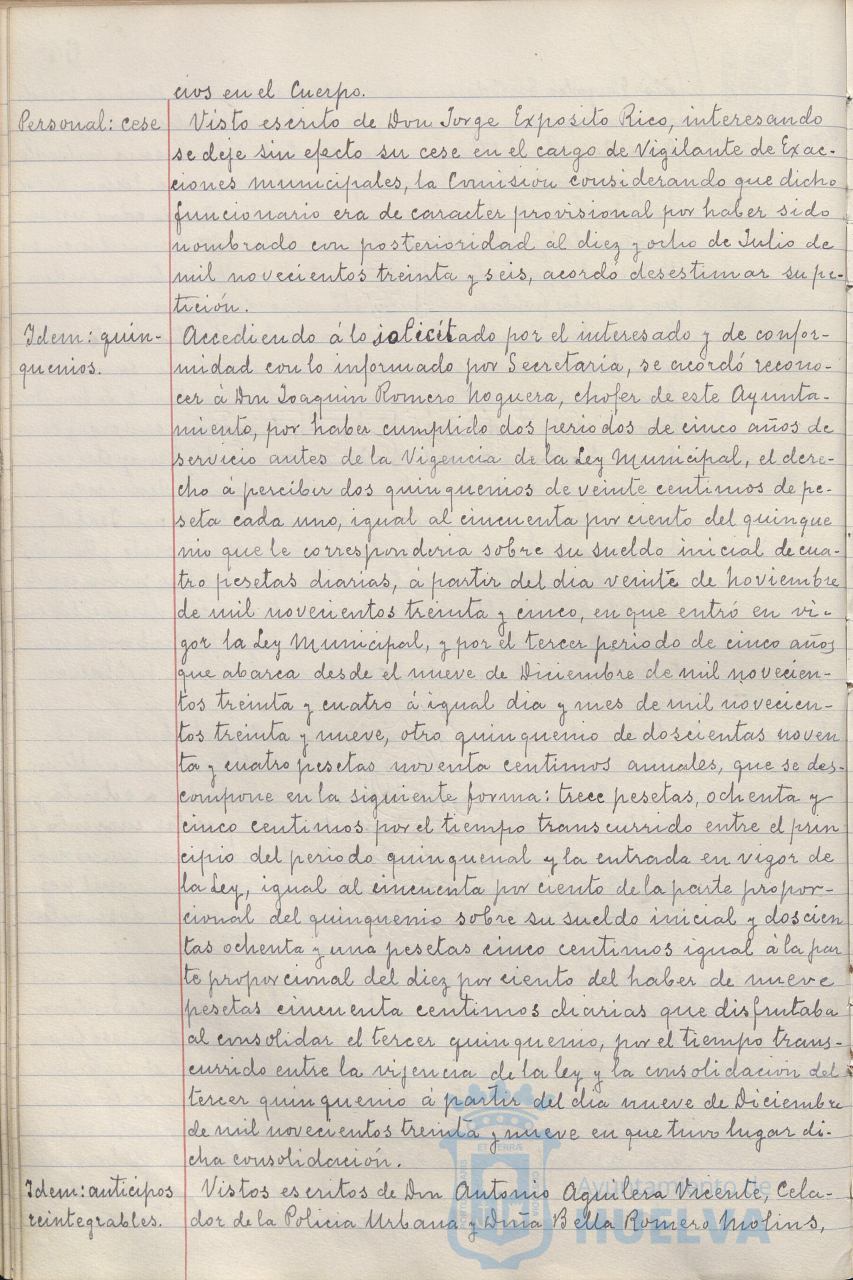 cios en el Cuerpo.
Personal: cese
Visto escrito de Don Jorge Exposito Rico, interesando
se deje sin efecto su cese en el cargo de Vigilante de Exac-
ciones municipales, la Comisión considerando que dicho
funcionario era de caracter provisional por haber sido
nombrado con posterioridad al diez y ocho de Julio de
mil novecientos treinta y seis, acordó desestimar su pe-
tición.
Idem: quin-
quenios.
Accediendo á lo solicitado por el interesado y de confor-
midad con lo informado por Secretaria, se acordó recono-
cer á Don Joaquin Romero Noguera, chofer de este Ayunta-
miento, por haber cumplido dos periodos de cinco años de
servicio antes de la Vigencia de la Ley Municipal, el dere-
cho á percibir dos quinquenios de veinte centimos de pe-
seta cada uno, igual al cincuenta por ciento del quinque
nio que le corresponderia sobre su sueldo inicial de cua-
tro pesetas diarias, á partir del dia veinte de Noviembre
de mil novecientos treinta y cinco, en que entró en vi-
gor la Ley Municipal, y por el tercer periodo de cinco años
que abarca desde el nueve de Diciembre de mil novecien-
tos treinta y cuatro á igual dia y mes de mil novecien-
tos treinta y nueve, otro quinquenio de doscientas noven
ta y cuatro pesetas noventa centimos anuales, que se des-
compone en la siguiente forma: trece pesetas, ochenta y
cinco centimos por el tiempo transcurrido entre el prin
cipio del periodo quinquenal y la entrada en vigor de
la Ley, igual al cincuenta por ciento de la parte propor-
cional del quinquenio sobre su sueldo inicial y doscien
tas ochenta y una pesetas cinco centimos igual á la par
te proporcional del diez por ciento del haber de nueve
pesetas cincuenta centimos diarias que disfrutaba
al consolidar el tercer quinquenio, por el tiempo trans-
currido entre la vijencia de la ley y la consolidación del
tercer quinquenio á partir del dia nueve de Diciembre
de mil novecientos treinta y nueve en que tuvo lugar di-
cha consolidación.
Idem: anticipos
reintegrables.
Vistos escritos de Don Antonio Aguilera Vicente, Cela-
dor de la Policia Urbana y Dña Bella Romero Molins,
Ayuntamiento de
HUELVA